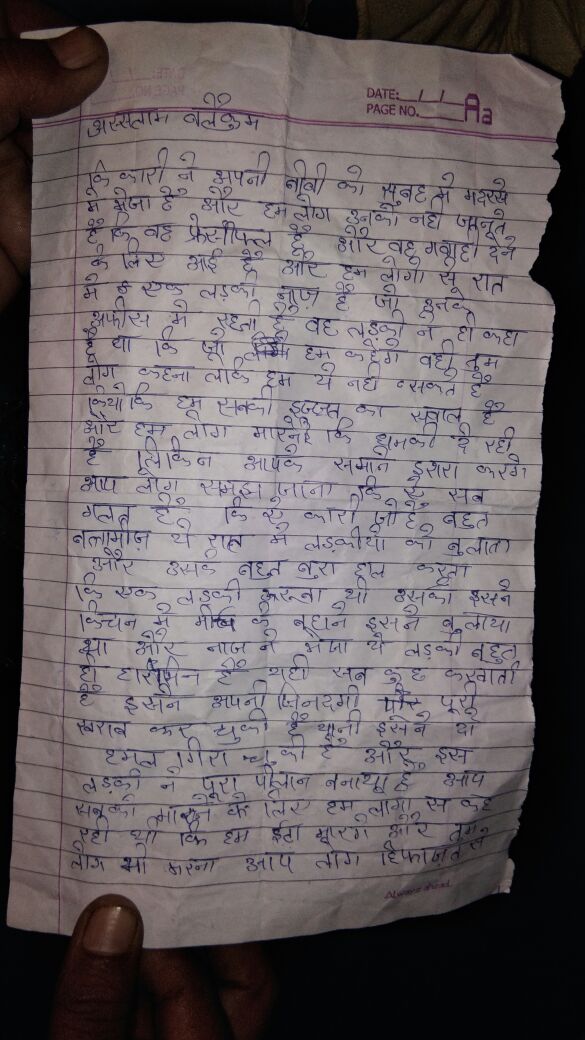 DATE: / /
PAGE NO.
Aa
अस्सलाम वलैकुम
कि कारी ने अपनी बीवी को सुबह मे मदरसे
मे भेजा है और हम लोग उनको नही जानते
है कि वह प्रेंसीपल है और वह गवाही देने
के लिए आई है और हम लोगो से रात
मे एक लड़की नाज़ है जो उनके
अफीस मे रहती है वह लड़की ने ही कहा
था कि जो हम कहेगे वही तुम
लोग कहना लकि हम ये नही सकते है
कियोकि हम सबकी इज़्ज़त का सवाल है
और हम लोग मारने कि धमकी दे रही
है लिकिन आपके समाने इशारा करेगे
आप लोग समझ जाना कि ये सब
गलत है कि ये कारी जो है बहुत
बतामीज़ ये रात मे लड़कीयो को बुलाता
और उसके बहुत बुरा हाल करता
कि एक लड़की थी उसको इसने
किचन मे के बहाने इसने बुलाया
था और नाज ने भेजा ये लड़की बहुत
ही है यही सब कुछ करवाती
है इसने अपनी जिनदगी पूरी
खराब कर चुकी है यानी इसने दो
हमल गिरा चुकी है और इस
लड़की ने पूरा पीलान बनाया है आप
सबको मारने के लिए हम लोगो से कह
रही थी कि हम ईटा मारेगे और तुम
लोग भी मारना आप लोग हिफाजत से
Always ahead